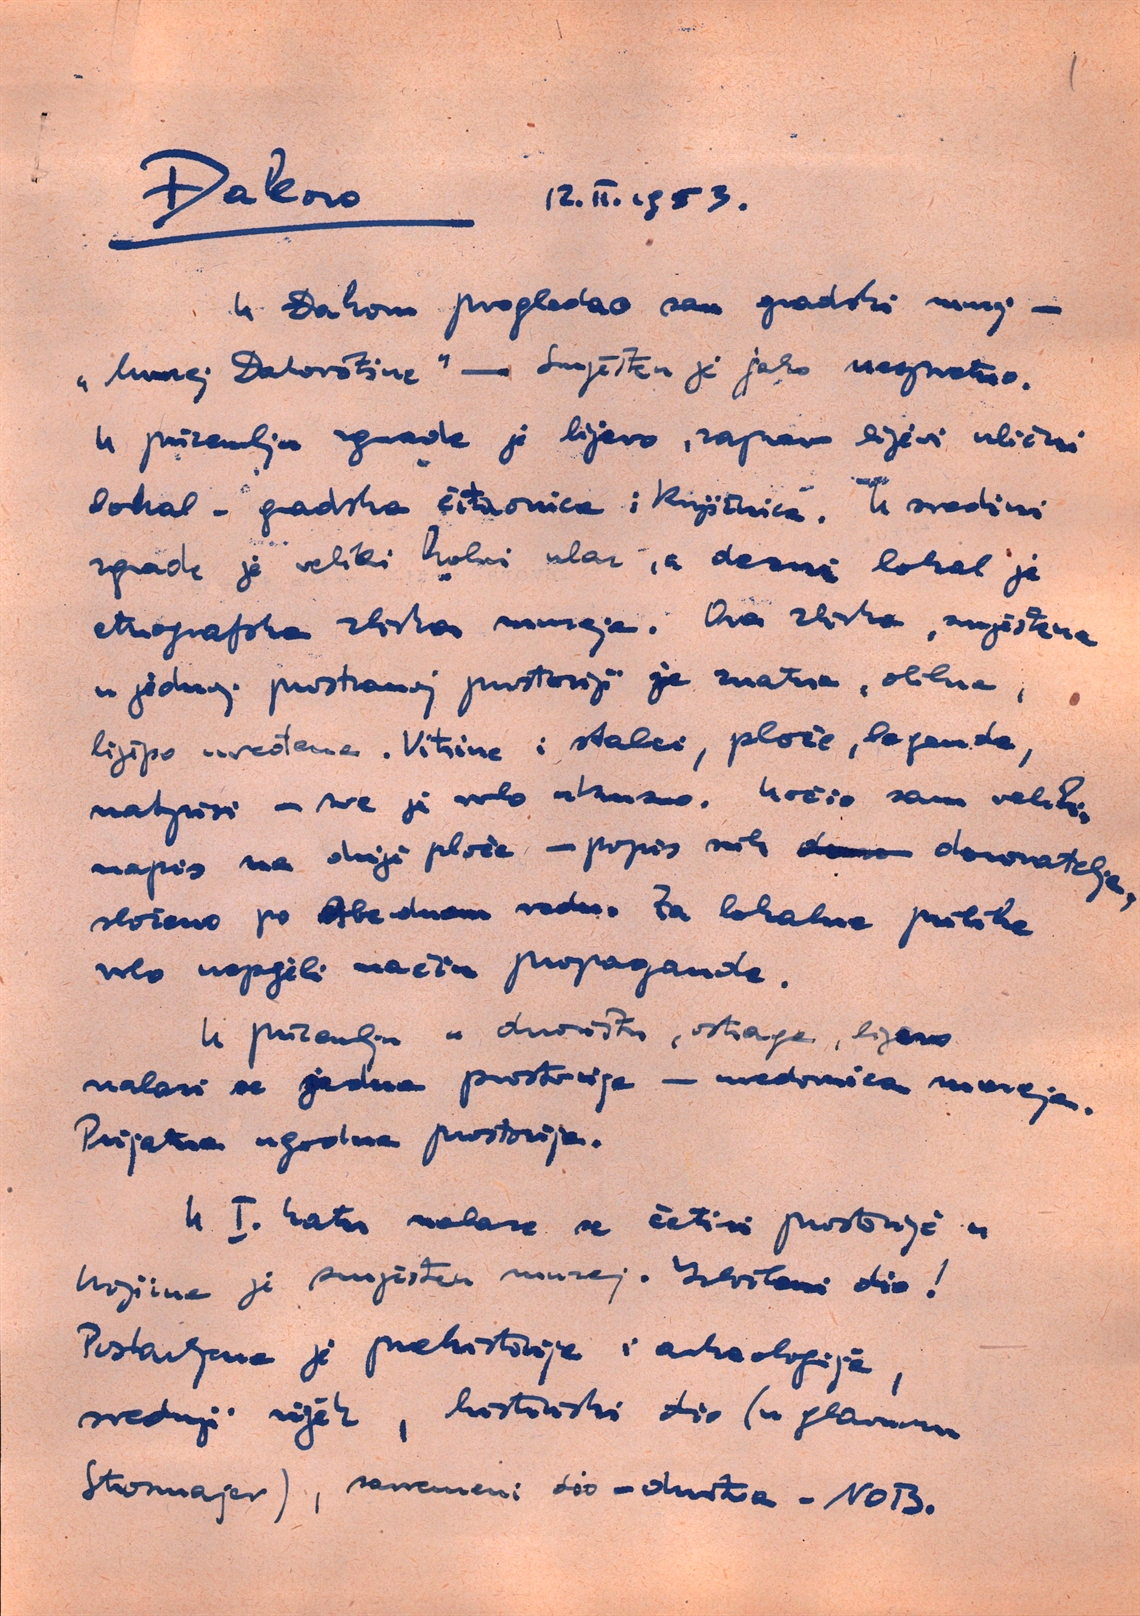 Đakovo 12.II.1953.
U Đakovu pregledao sam gradski muzej —
"Muzej Đakovštine" — Smješten je jako nespretno.
U prizemlju zgrade je lijevo, zapravo lijevi ulični
lokal - gradska čitaonica i knjižnica. U sredini
zgrade je veliki kolni ulaz, a desni lokal je
etnografska zbirka muzeja. Ova zbirka, smještena
u jednoj prostranoj prostoriji je znatna, obilna,
lijepo uređena. Vitrine i stalci, ploče, legende,
natpisi — sve je vrlo ukusno. Uočio sam veliki
napis na dvije ploče — popis svih darovatelja,
složeno po abecednom redu. Za lokalne prilike
vrlo uspjeli način propagande.
U prizemlju u dvorištu, ostraga, lijevo
nalazi se jedna prostorija — uredovnica muzeja.
Prijatna ugodna prostorija.
U I. katu nalaze se četiri prostorije u
kojima je smješten muzej. Izložbeni dio!
Postavljena je prehistorija i arheologija,
srednji vijek, historijski dio (u glavnom
Strosmajer), savremeni dio — društva - NOB.